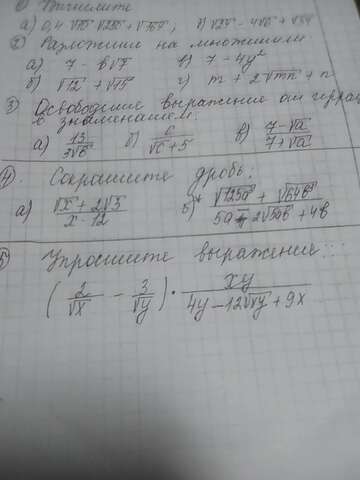 ① Вычислите
а) 0,4 √10 √250 + √169 ; б) √24 - 4√6 + √54
② Разложите на множители.
а) 7 - 6√7 в) 7 - 4y²
б) √12 + √15 г) m + 2√mn + n
③ Освободите выражение от иррац.
в знаменателе:
а) 13/(3√b) б) c/(√c + 5) в) (7 - √a)/(7 + √a)
④. Сократите дробь:
а) (√x + 2√3)/(x - 12) б)* (√125a³ + √64b³)/(5a - 2√5ab + 4b)
⑤ Упростите выражение:
(2/√x - 3/√y) · xy/(4y - 12√xy + 9x)